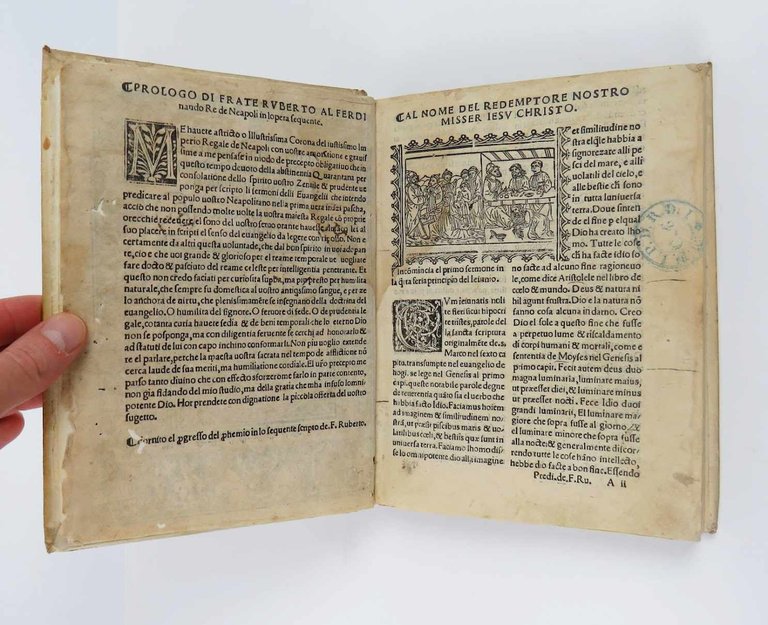 ¶PROLOGO DI FRATE RVBERTO AL FERDI
nando Re de Neapoli in lopera sequente.
ME hauete astricto o Illustrissima Corona del iustissimo Im
perio Regale de Neapoli con uostre
sime a me pensase in modo de precepto obligatiuo che in
questo tempo deuoto della abstinentia Quarantana per
consolatione dello spirito uostro Zentile & prudente ue
ponga per scripto li sermoni delli Euangelii che intendo
predicare al populo uostro Neapolitano nella prima uera
accio che non possendo molte uolte la uostra maiesta Regale cō proprie
orecchie
al suo piacere in scripti el senso del euangelio da legere con Non e
certamente da altri questa uoluntade, che dal ben spirito in uoi
te, cio e che uoi grande & glorioso per el reame temporale ue uogliate
fare docto & pasciuto del reame celeste per intelligentia penetrante. Et
questo non credo faciati per curiosita supba, ma piu presto per humilita
naturale, che sempre su domestica al uostro antiquissimo sangue, e per ze
lo anchora de uirtu, che plenissimamēte se insegnano della doctrina del
euangelio. O humilita del signore. O feruore di sede. O de prudentia le
gale, cotanta curia hauete in sede & de beni temporali che lo eterno Dio
non se posponga, ma con diligentia feruente se cerchi ad honorarlo &
ad statuti de lui con capo inchino conformarsi. Non piu uoglio extende
re el parlare, perche la maesta uostra sacrata nel tempo de afflictiōe nō
cerca laude de sua meriti, ma humiliatione cordiale. El uro precepto me
parso tanto diuino che con effecto sforzerome farlo in parte contento,
non gia fidando del mio studio, ma della gratia che ha insuso lomni
potente Dio. Hor prendere con dignatione la piccola offerta del uostro
sugetto.
¶Fornito el pgresso del phemio in lo sequente scripto de. F. Ruberto.
¶AL NOME DEL REDEMPTORE NOSTRO
MISSER IESV CHRISTO.
et similitudine no
stra elqle habbia a
signorezare alli pe
sci del mare, e alli
uolanti del cielo, e
alle bestie chī sono
in tutta luniuersa
terra. Doue sinten
de el fine p elqual
Dio ha creato lho
mo. Tutte le cose
chi ha facte idio so
Incomincia el primo sermone in
la qta feria principio del ieiunio.
CVm ieiunatis noli
te fieri sicut hipocri
te tristes, parole del
la sancta scriptura
originalmēte de. s.
Marco nel sexto ca
pito, transumpte nel euangelio de
hogi. se lege nel Genesis al primo
capi. queste notabile parole degne
de reuerentia quāto sia el uerbo che
habbia tracto Idio. Faciamus homi
nē ad imaginem & similitudinem
nostrā, ut presit piscibus maris & uo
latilibus cœli, & bestiis quæ sunt in
uniuersa terra. Faciamo lhomo dis
se lo omnipotente dio alla imagine
no facte ad alcuno fine ragioneuo
le, come dice Aristotele nel libro de
cælo & mundo. Deus & natura ni
hil agunt frustra. Dio e la natura nō
fanno cosa alcuna in darno. Creo
Dio el sole a questo fine che fusse
a perpetuo lume & riscaldamento
di corpi humani & mortali, come e
sententia de Moyses nel Genesis al
primo capi. Fecit autem deus duo
magna luminaria, luminare maius,
ut præesset diei, & luminare minus
ut præesset nocti. Fece Idio duoi
grandi luminarii, El luminare ma
giore che fosse sopra al giorno, &
el luminare minore che fosse sopra
alla nocte & generalmente discor
rendo tutte le cose hāno intellecto,
hebbe dio facte a bon fine. Essendo
Predi. de. F. Ru. A ii